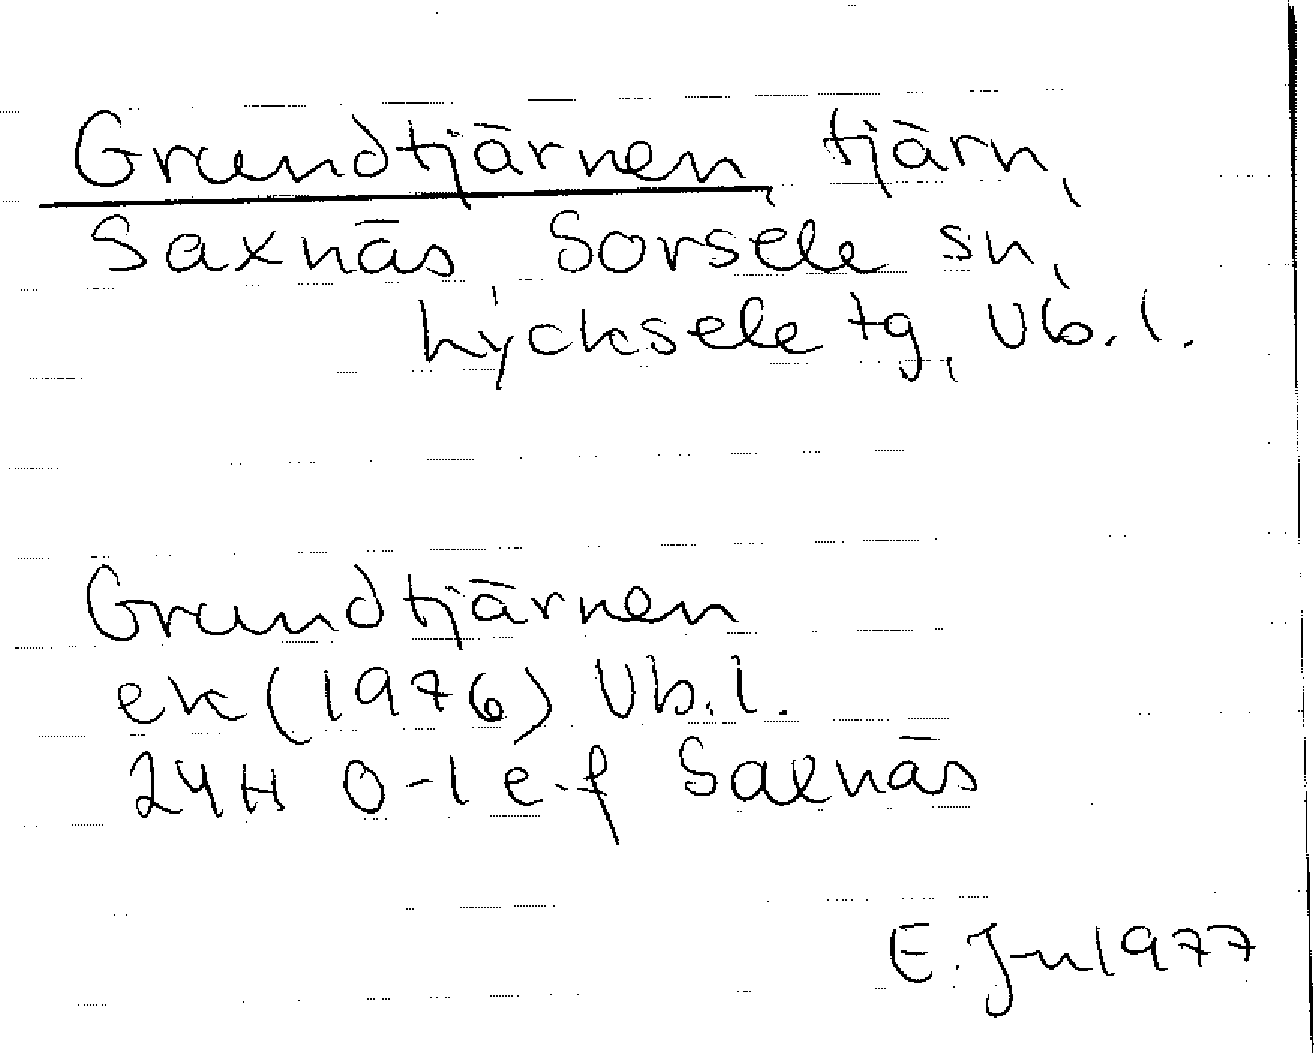 Grundtjärnen, tjärn,
Saxnäs, Sorsele sn,
Lycksele tg, Vb. l.
Grundtjärnen
ek (1976) Vb. l.
24H 0-1 e-f Saxnäs
E. J-n 1977